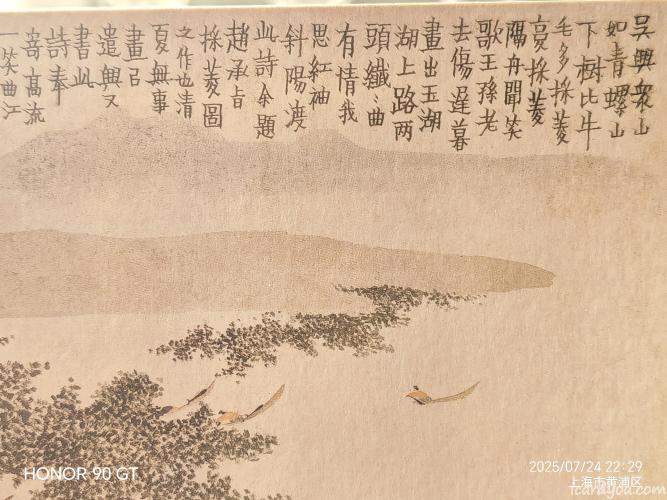 吳興衆山
如青螺山
下樹比牛
毛多採菱
复採菱
隔舟聞笑
歌王孫老
去傷遲暮
畫出玉湖
湖上路兩
頭纖〻曲
有情我
思紅袖
斜陽渡
此詩余題
趙承旨
採菱圖
之作也清
夏無事
畫㠯
遣興又
書此
詩奉
寄高流
一笑曲江
HONOR 90 GT
2025/07/24 22:29
上海市黄浦区
icarayou.com